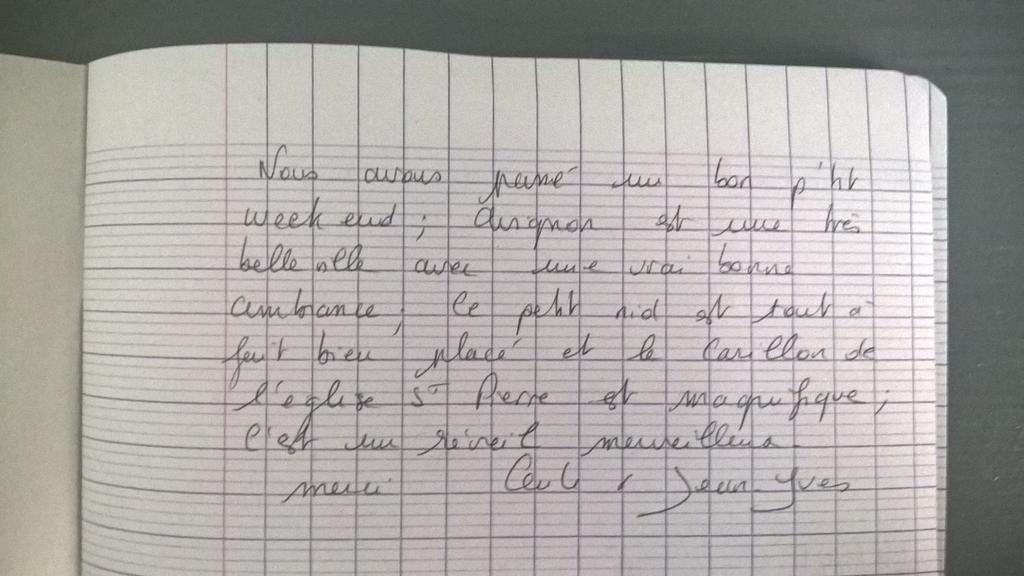 Nous avons passé un bon p'tit
week end ; Avignon est une très
belle ville avec une vrai bonne
ambiance, le petit nid est tout à
fait bien placé et le carillon de
l'église St Pierre est magnifique ;
c'est un réveil merveilleux
merci Jean-Yves